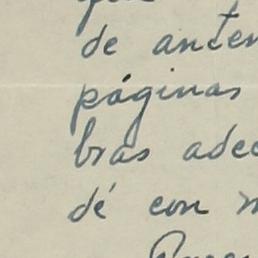 que
de anten
páginas
bras adec
dé con m